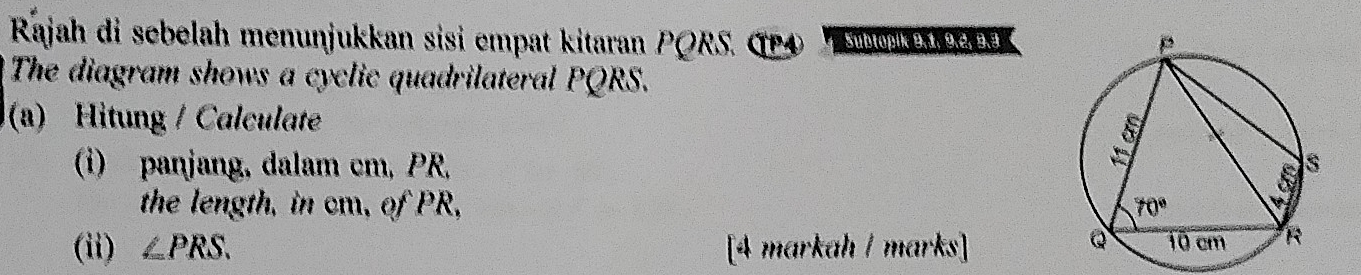 Rajah di sebelah menunjukkan sisi empat kitaran PQRS. TP4 Subtopik 9.1, 9.2, 9.3
The diagram shows a cyclic quadrilateral PQRS.
(a) Hitung / Calculate
(i) panjang, dalam cm, PR,
the length, in cm, of PR,
(ii) ∠PRS.
[4 markah / marks]
P
11 cm
S
4 cm
70°
Q
10 cm
R